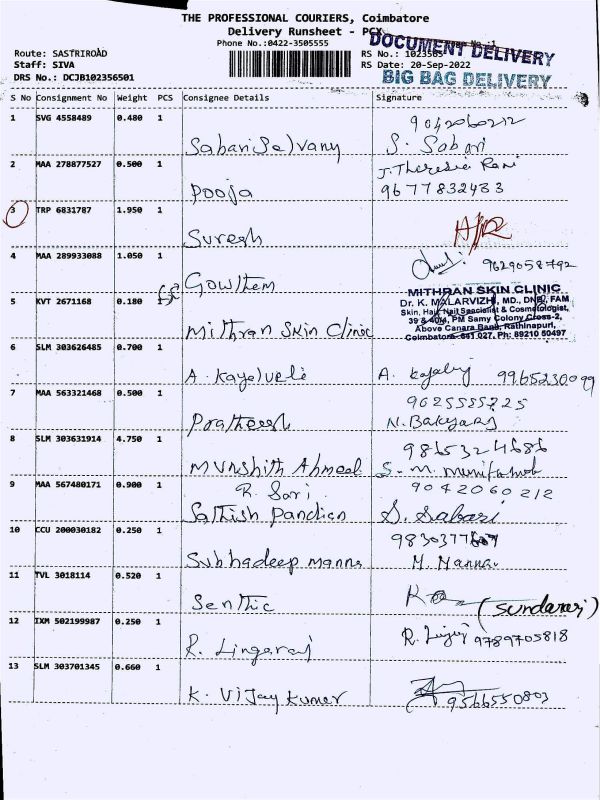 THE PROFESSIONAL COURIERS, Coimbatore
Delivery Runsheet - PCX
Phone No.:0422-3505555
DOCUMENT DELIVERY
Route: SASTRIROAD
RS No.:
Staff: SIVA
RS Date: 20-Sep-2022
DRS No.: DCJB102356501
BIG BAG DELIVERY
S No Consignment No Weight PCS Consignee Details Signature
1 SVG 4558489 0.480 1
9042060212
SabariSelvany S. Sabari
2 MAA 278877527 0.500 1
J. Theresia Rani
Pooja 9677832433
3 TRP 6831787 1.950 1
Suresh
4 MAA 289933088 1.050 1
Gowthem 9629058792
5 KVT 2671168 0.180 1
MITHRAN SKIN CLINIC
Dr. K. MALARVIZHI, MD., DNB, FAM
Skin, Hair, Nail Specialist & Cosmetologist,
39 & 40/4, PM Samy Colony Cross-2,
Above Canara Bank, Rathinapuri,
Mithran Skin Clinic Coimbatore- 641 027. Ph: 89210 50497
6 SLM 303626485 0.700 1
A. Kayalveli A. 9965230099
7 MAA 563321468 0.500 1
Pratheesh N. Bakyaraj
8 SLM 303631914 4.750 1
9865324686
Munshith Ahmed S. M.
9 MAA 567480171 0.900 1
R. Sari 9042060212
Sathish Pandien S. Sabari
10 CCU 200030182 0.250 1
Subhadeep manna M. Manna
11 TVL 3018114 0.520 1
Senthic (Sundararaj)
12 IXM 502199987 0.250 1
R. Lingaraj R. 9789705818
13 SLM 303701345 0.660 1
K. Vijay kumar 9566550803